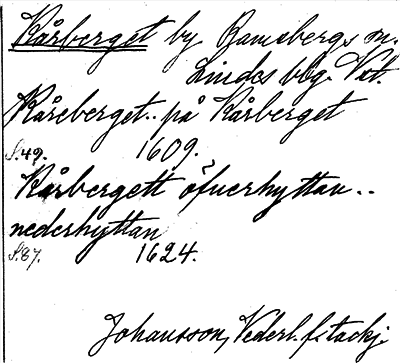 Kårberget by Ramsbergs sn.
Lindes blg. Vstl.
Kåreberget.. på Kårberget
S.49. 1609.
Kårbergett öfuerhyttan..
nederhyttan
S.87. 1624.
Johansson, Vederl. f. tackj.